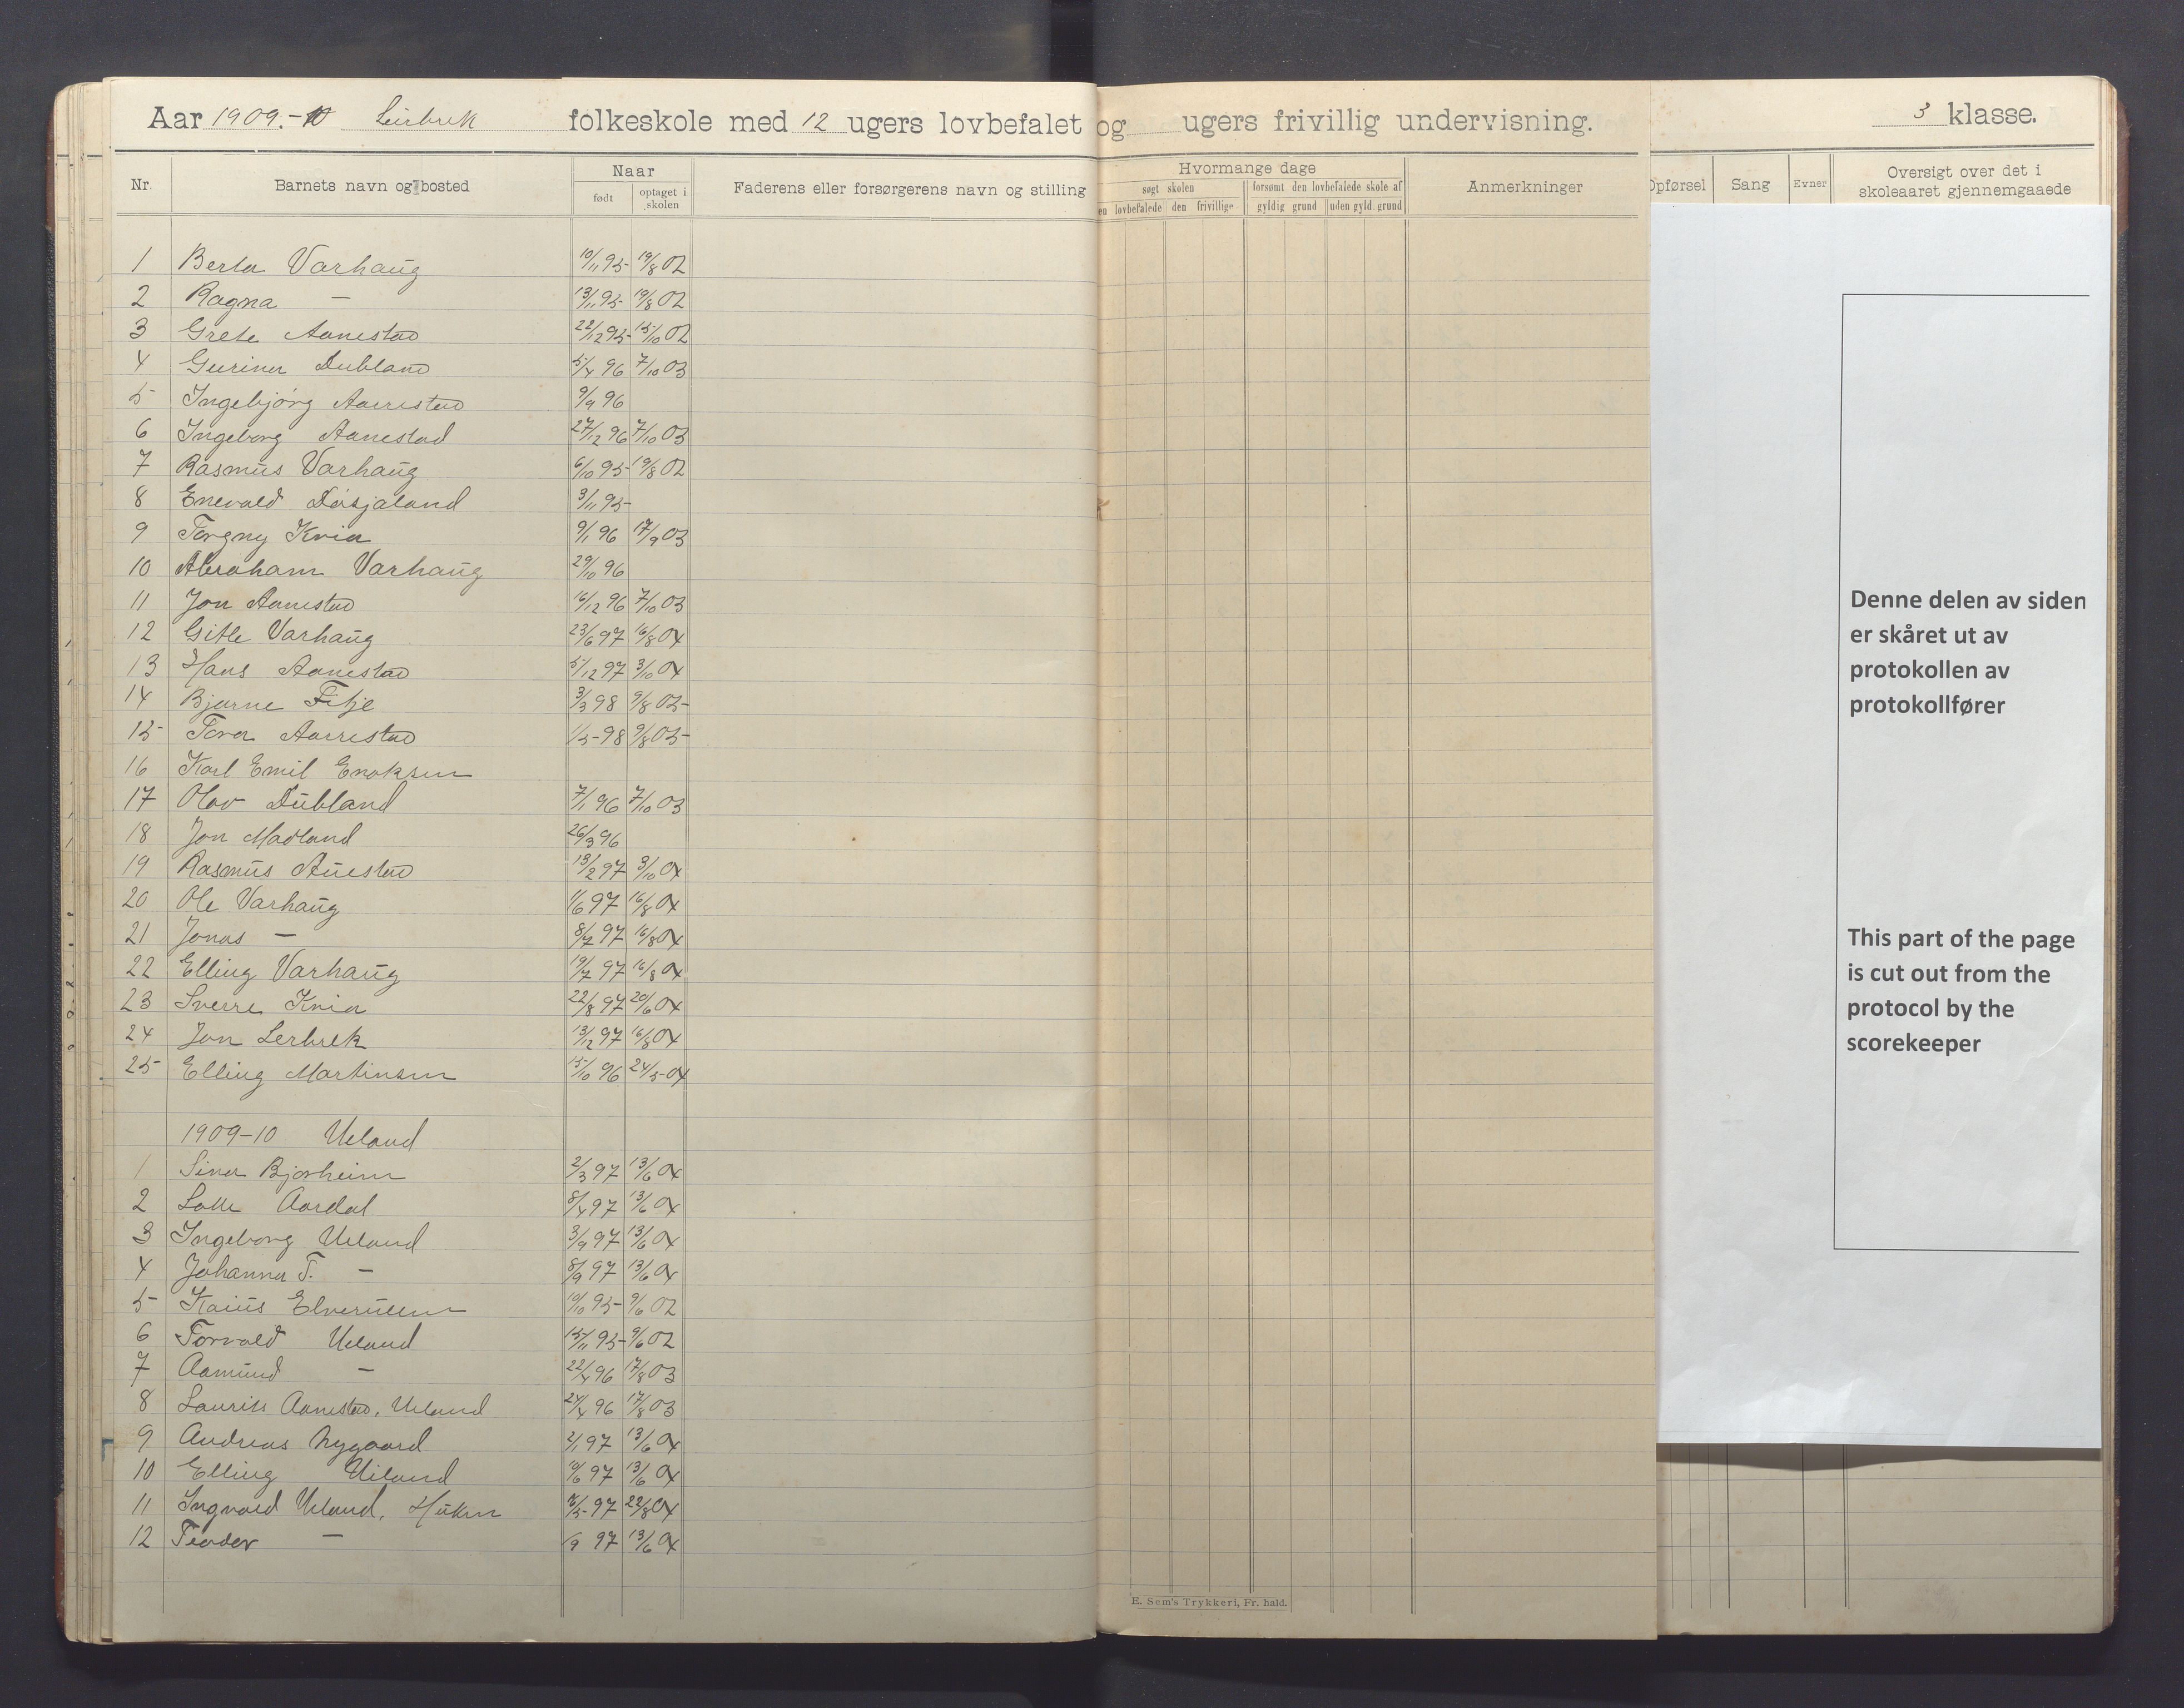 Aar 1909.-10 Leirbrek folkeskole med 12 ugers lovbefalet og ugers frivillig undervisning. 3 klasse.
Nr. Barnets navn og bosted Naar født optaget i skolen Faderens eller forsørgerens navn og stilling Hvormange dage søgt skolen den lovbefalede den frivillige forsømt den lovbefalede skole af gyldig grund uden gyld. grund Anmerkninger Opførsel Sang Evner Oversigt over det i skoleaaret gjennemgaaede
1 Berta Varhaug 10/11 95 19/8 02
2 Ragna — 13/11 95 19/8 02
3 Grete Aanestad 22/12 95 15/10 02
4 Gurina Dubland 5/4 96 7/10 03
5 Ingebjørg Aarrestad 9/9 96
6 Ingeborg Aanestad 27/12 96 7/10 03
7 Rasmus Varhaug 6/10 95 19/8 02
8 Enevald Døsjaland 3/11 95
9 Torgny Kvia 9/1 96 17/9 03
10 Abraham Varhaug 29/10 96
11 Jon Aanestad 16/12 96 7/10 03
12 Gitle Varhaug 23/6 97 16/8 04
13 Hans Aanestad 5/12 97 3/10 04
14 Bjarne Fitje 3/3 98 9/8 05
15 Tora Aarrestad 1/5 98 9/8 05
16 Karl Emil Enoksen
17 Olav Dubland 7/1 96 7/10 03
18 Jon Madland 26/3 96
19 Rasmus Auestad 13/2 97 3/10 04
20 Ole Varhaug 1/6 97 16/8 04
21 Jonas — 8/7 97 16/8 04
22 Elling Varhaug 19/7 97 16/8 04
23 Sverre Kvia 22/8 97 20/6 04
24 Jon Lerbrek 13/12 97 16/8 04
25 Elling Martinsen 15/10 96 24/5 04
1909-10 Ueland
1 Sina Bjorheim 2/3 97 13/6 04
2 Lalle Aardal 8/4 97 13/6 04
3 Ingeborg Ueland 3/9 97 13/6 04
4 Johanna T. — 8/9 97 13/6 04
5 Kaius 10/10 95 9/6 02
6 Torvald Ueland 15/11 95 9/6 02
7 Aamund — 22/4 96 17/8 03
8 Laurits Aanestad, Ueland 24/4 96 17/8 03
9 Andreas Nygaard 2/1 97 13/6 04
10 Elling Ueland 10/6 97 13/6 04
11 Ingvald Ueland, /5 97 22/8 04
12 Teodor — /9 97 13/6 04
E. Sem's Trykkeri, Fr. hald.
Denne delen av siden
er skåret ut av
protokollen av
protokollfører
This part of the page
is cut out from the
protocol by the
scorekeeper